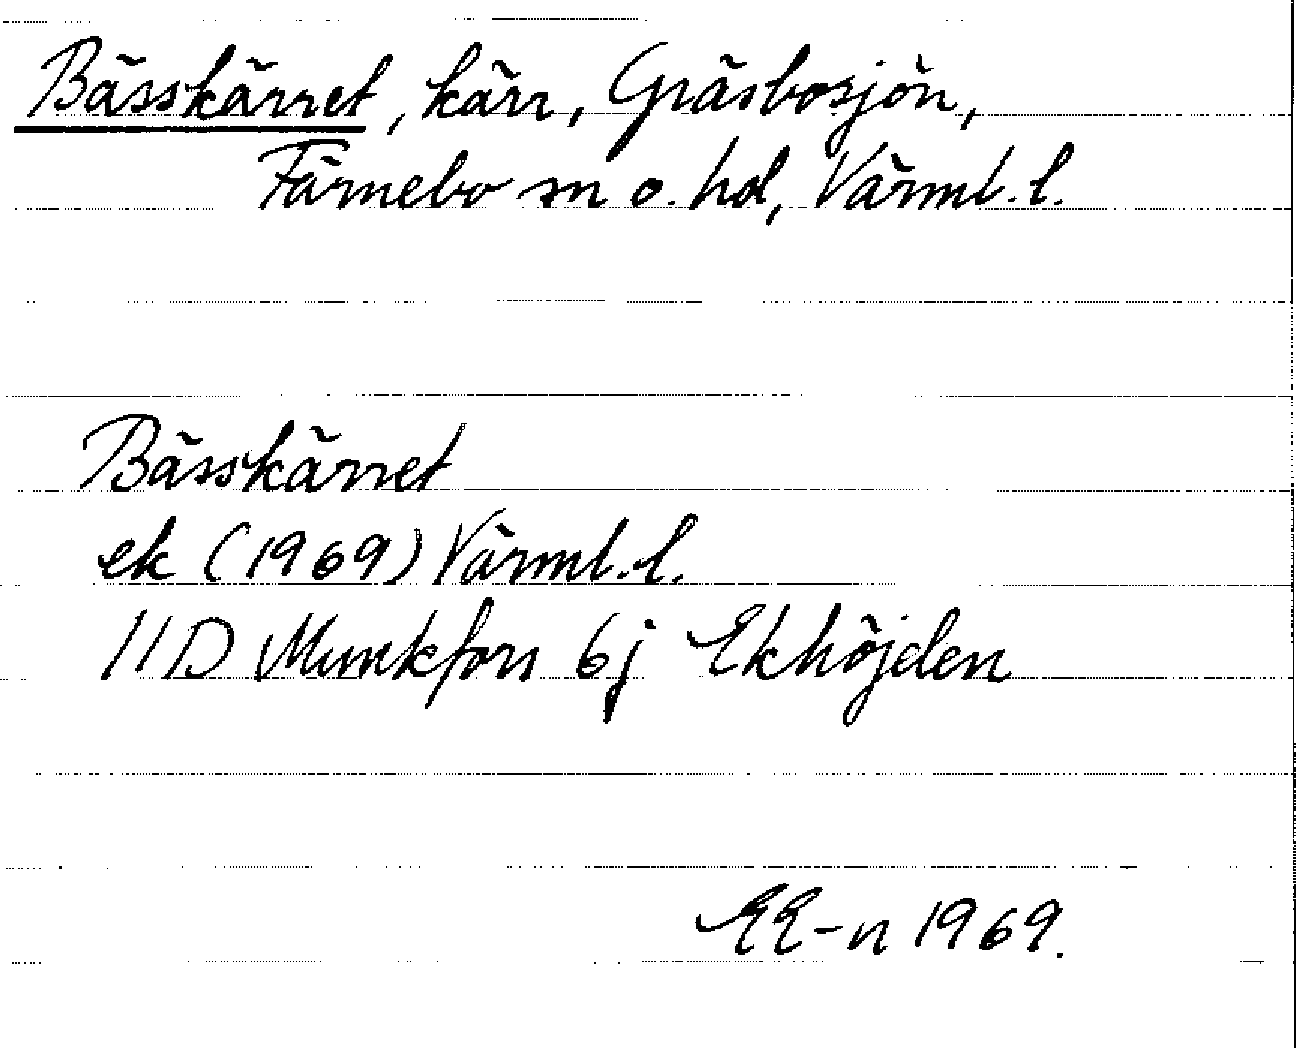 Bässkärret, kärr, Gräsbosjön,
Färnebo sn o. hd, Värml. l.
Bässkärret
ek (1969) Värml. l.
11D Munkfors 6j Ekhöjden
EE-n 1969.